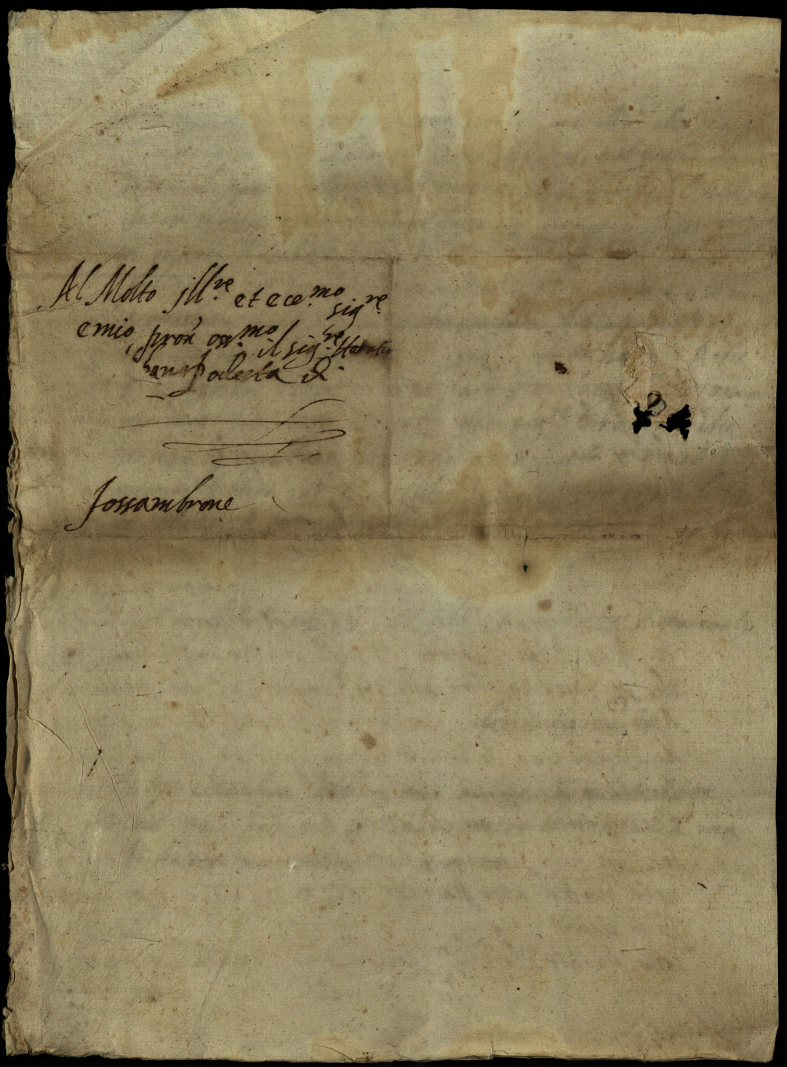 Al Molto Ill.re et ecc.mo sig.re
e mio pron oss.mo il sig.re
Podesta &.
fossambrone